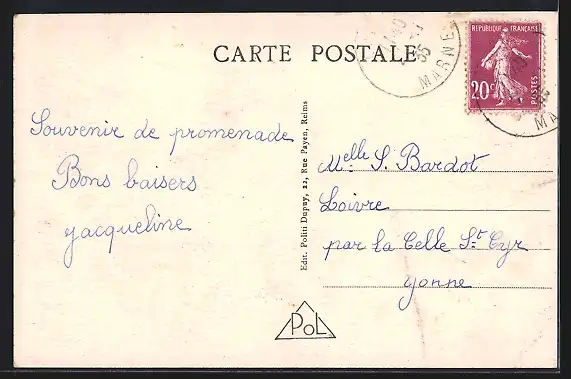 CARTE POSTALE
MARNE
35
REPUBLIQUE FRANÇAISE
20c
POSTES
Souvenir de promenade
Bons baisers
Jacqueline
Edit. Politi Dupuy, 22, Rue Payen, Reims
Melle S. Bardot
Loivre
par la Celle St. Cyr
Yonne
POL